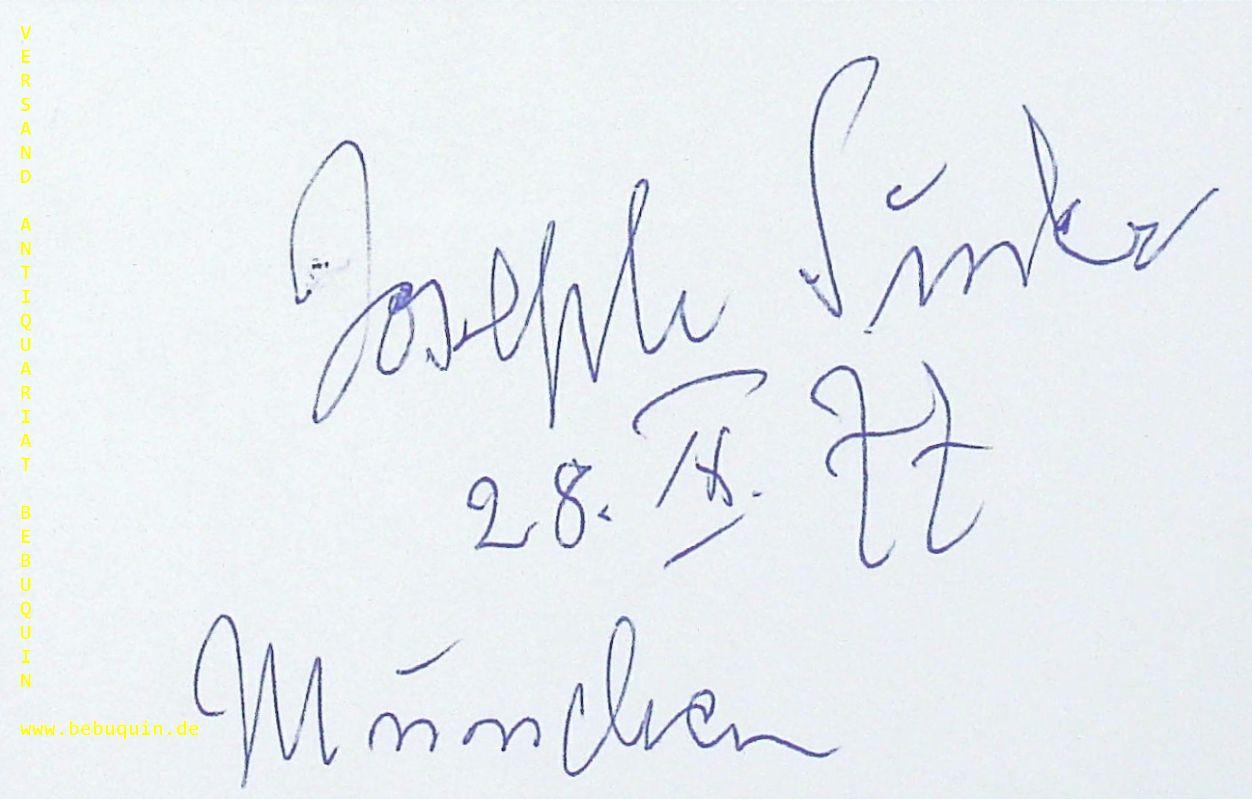 VERSAND ANTIQUARIAT BEBUQUIN
Joseph Suder
28. IX. 77
München
www.bebuquin.de